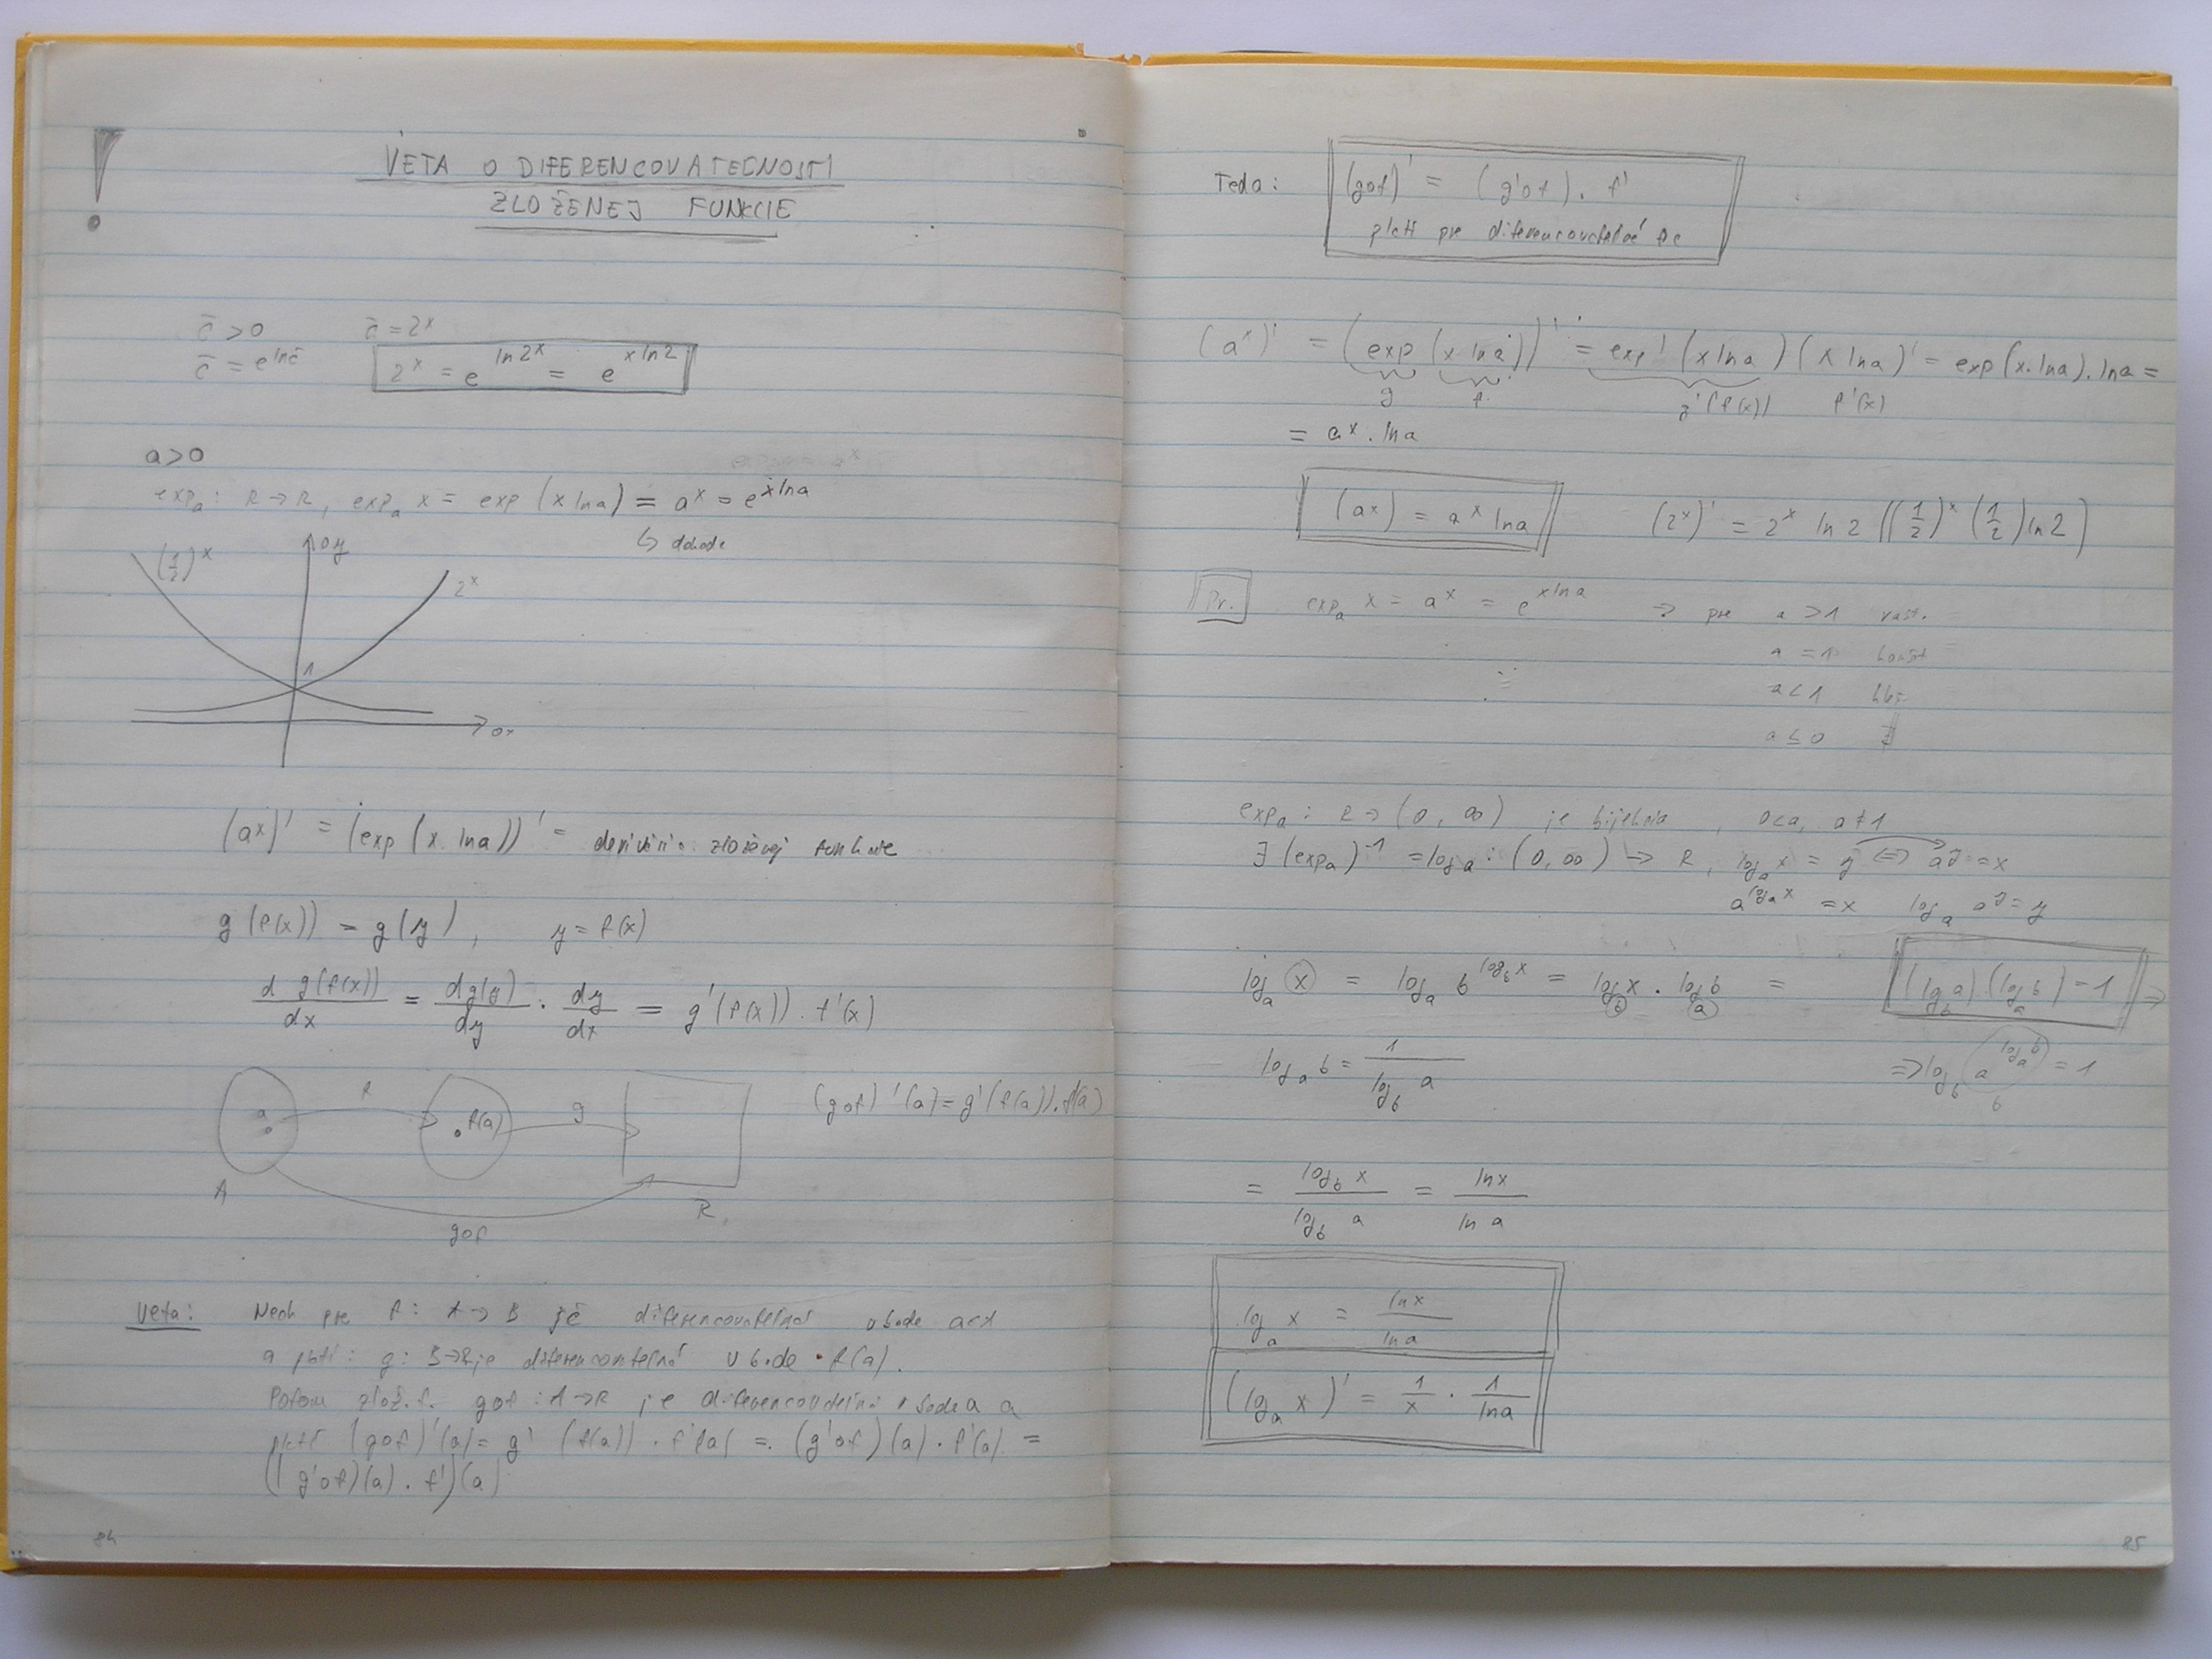 !
VETA O DIFERENCOVATEĽNOSTI
ZLOŽENEJ FUNKCIE
c̄ > 0    c̄ = 2^x
c̄ = e^{ln c̄}    2^x = e^{ln 2^x} = e^{x ln 2}
a > 0
exp_a : R → R, exp_a x = exp (x ln a) = a^x = e^{x ln a}
↳ dohoda
(1/2)^x    oy    2^x
1
ox
(a^x)' = (exp (x. ln a))' = derivácia zloženej funkcie
g (f(x)) = g(y),    y = f(x)
d g(f(x))/dx = dg(y)/dy · dy/dx = g'(f(x)) · f'(x)
a    f    f(a)    g    (g∘f)'(a) = g'(f(a)).f'(a)
A    R
g∘f
Veta: Nech pre f: A → B je diferencovateľná v bode a∈A
a platí: g: B→R je diferencovateľná v bode f(a).
Potom zlož. f. g∘f : A→R je diferencovateľná v bode a a
platí (g∘f)'(a) = g' (f(a)) · f'(a) = (g'∘f)(a) · f'(a) =
((g'∘f)(a) . f')(a)
84
Teda: (g∘f)' = (g'∘f). f'
platí pre diferencovateľné fc
(a^x)' = (exp (x ln a))' = exp' (x ln a) (x ln a)' = exp (x. ln a). ln a =
g    f    g'(f(x))    f'(x)
= a^x . ln a
(a^x) = a^x ln a    (2^x)' = 2^x ln 2 ((1/2)^x (1/2) ln 2)
Pr.    exp_a x = a^x = e^{x ln a} → pre a > 1 rast.
a = 1 konšt
a < 1 kles
a ≤ 0 ∄
exp_a : R → (0, ∞) je bijekcia, 0<a, a ≠ 1
∃ (exp_a)^{-1} = log_a : (0, ∞) → R, log_a x = y ⇔ a^y = x
a^{log_a x} = x    log_a a^y = y
log_a x = log_a b^{log_b x} = log_b x . log_a b =    (log_b a).(log_a b) = 1 ⇒
log_a b = 1/log_b a    ⇒ log_b a^{log_a b} = 1
b
= log_b x / log_b a = ln x / ln a
log_a x = ln x / ln a
(log_a x)' = 1/x · 1/ln a
85